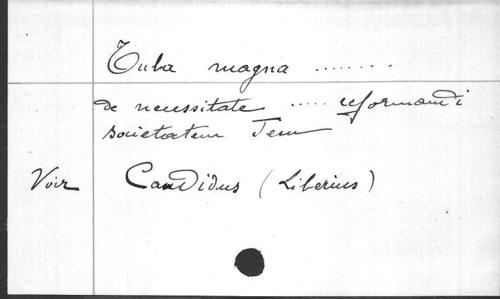 Tuba magna ........
de necessitate ..... reformandi
societatem Jesu
Voir Candidus (Liberius)